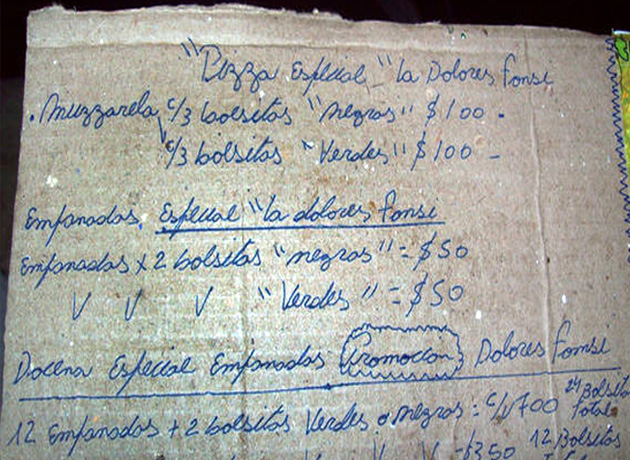 "Pizza Especial - "la Dolores Fonsi
. Muzzarela c/3 bolsitas "negras" $100 -
c/3 bolsitas "Verdes" $100 -
Empanadas, Especial "la dolores fonsi
Empanadas x 2 bolsitas "negras" = $50
V V V "Verdes" = $50
Docena Especial Empanadas Promoción Dolores Fonsi
12 Empanadas + 2 bolsitas Verdes o negras = c/u 700 24 Bolsitas Total
V V V - $350 12 Bolsitas